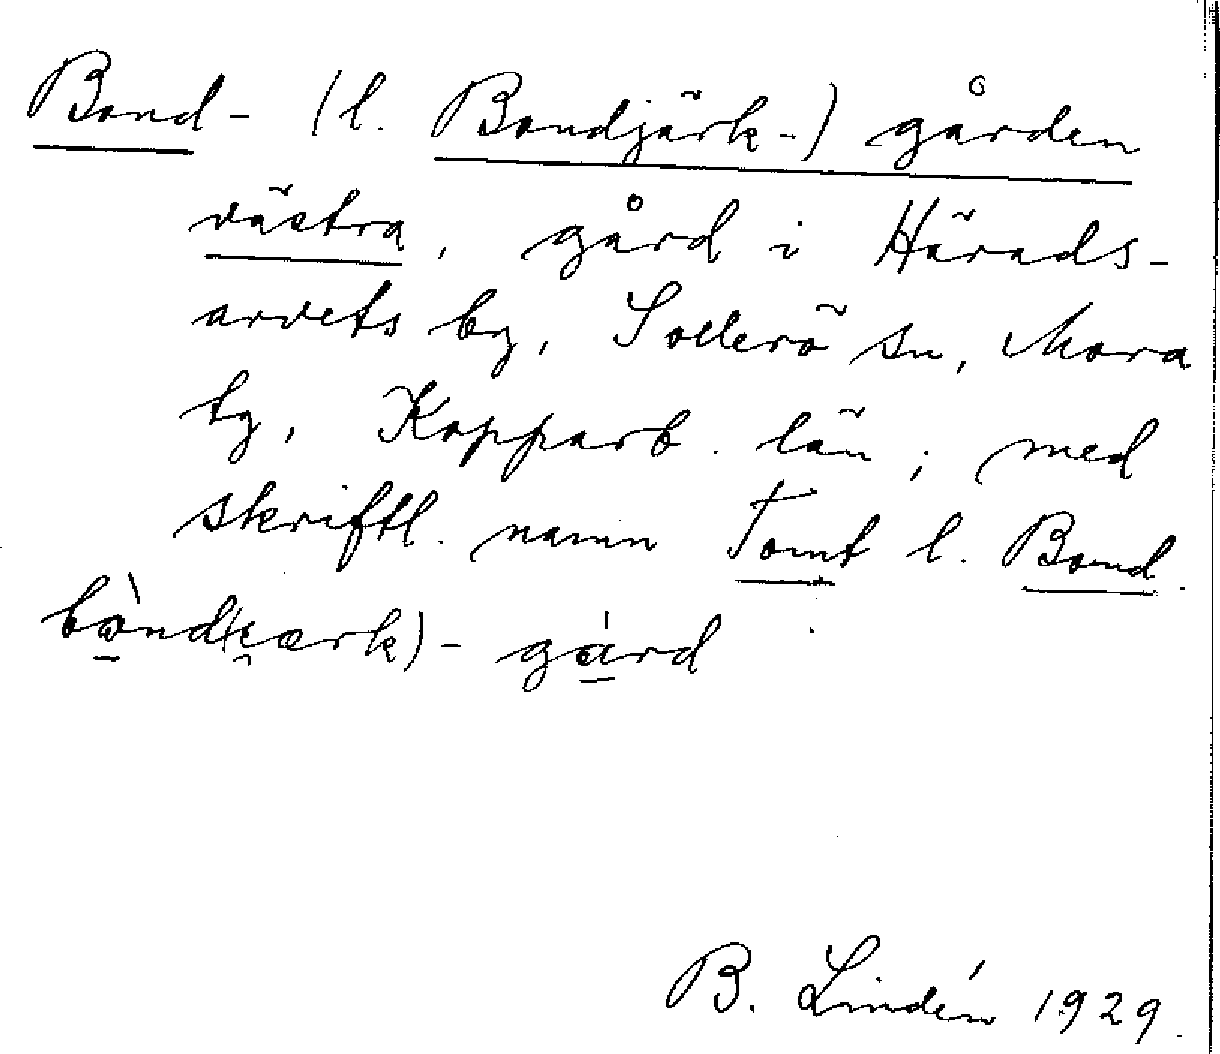 Bond- (l. Bondjärk-) gården
västra, gård i Härads-
arvets by, Sollerö sn, Mora
tg, Kopparb. län; med
skriftl. namn Tomt l. Bond.
bò̱nd(i̯ærk)-gá̱rd
B. Lindén 1929.